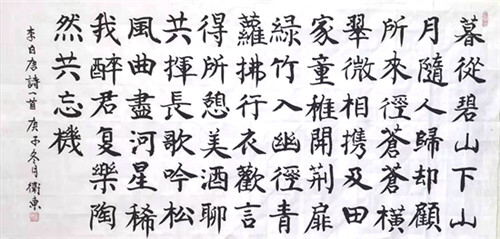 暮從碧山下山
月隨人歸却顧
所來徑蒼蒼橫
翠微相携及田
家童稚開荆扉
綠竹入幽徑青
蘿拂行衣歡言
得所憩美酒聊
共揮長歌吟松
風曲盡河星稀
我醉君复樂陶
然共忘機
李白唐詩一首 庚子冬月 衛東